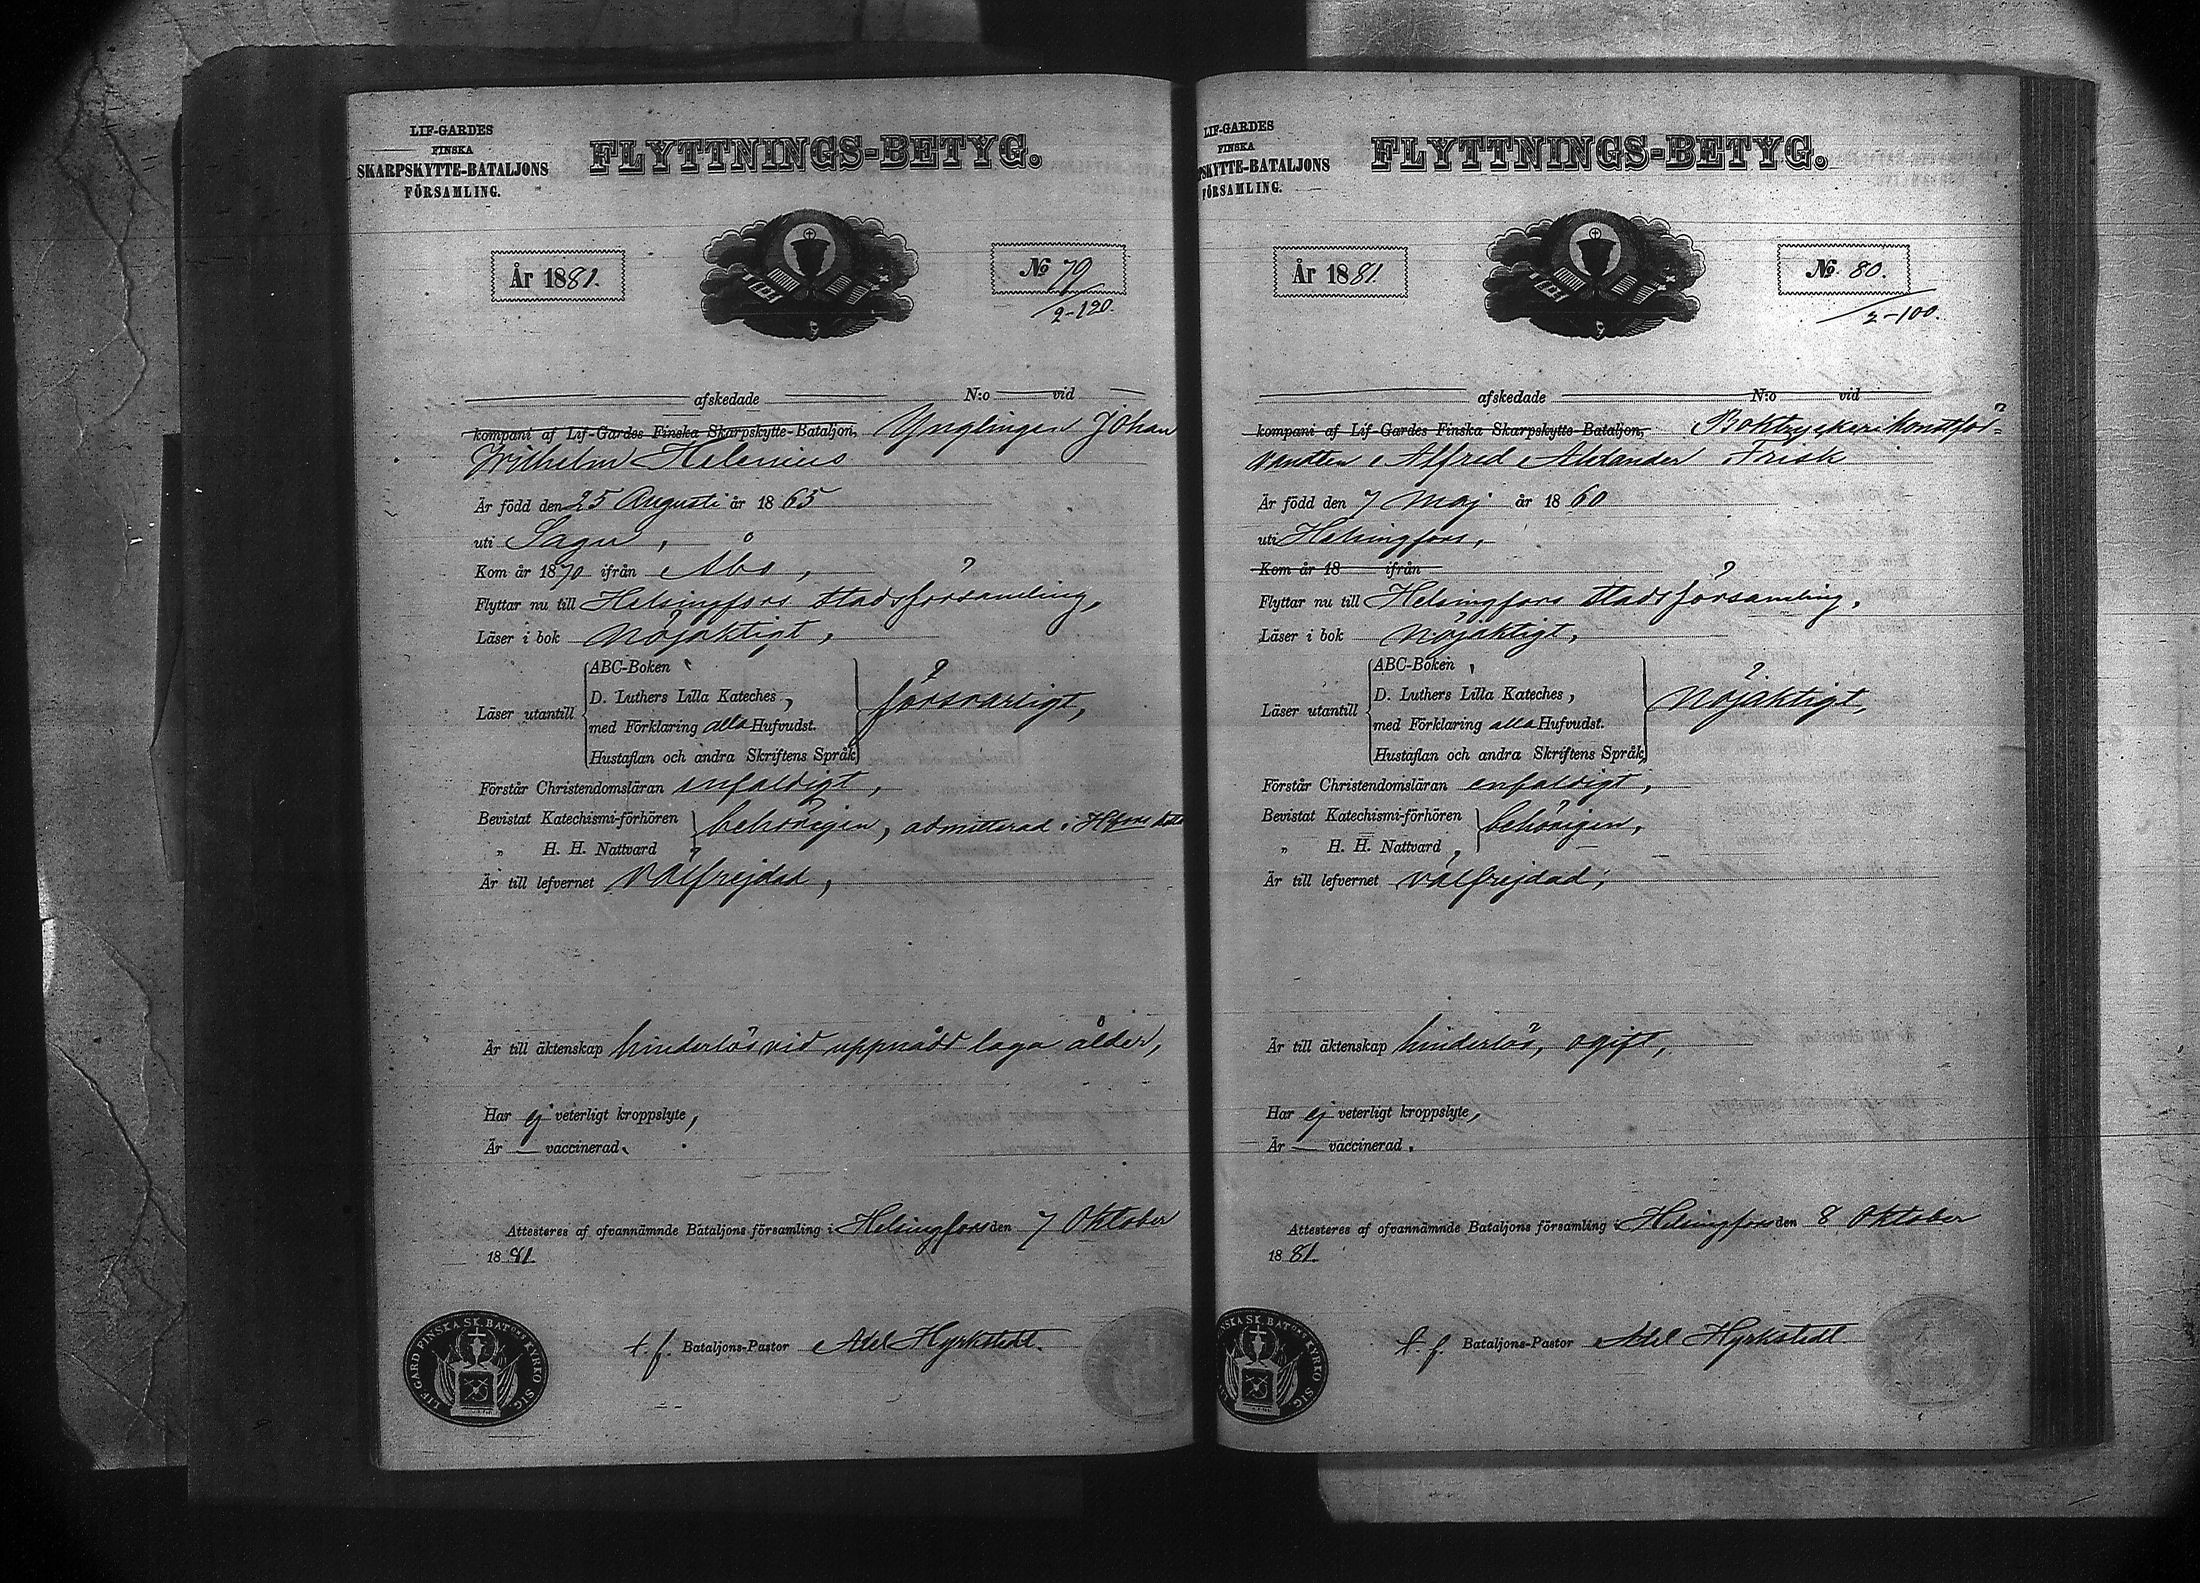 LIF-GARDES
FINSKA
SKARPSKYTTE-BATALJONS
FÖRSAMLING.
FLYTTNINGS-BETYG.
År 1881.
No 79
2-120.
afskedade N:o vid
kompani af Lif-Gardes Finska Skarpskytte-Bataljon, Ynglingen Johan
Wilhelm Helenius
Är född den 25 Augusti år 1865
uti Sagu,
Kom år 1870 ifrån Åbo,
Flyttar nu till Helsingfors stadsförsamling,
Läser i bok nöjaktigt,
Läser utantill
ABC-Boken,
D. Luthers Lilla Kateches,
med Förklaring alla Hufvudst.
Hustaflan och andra Skriftens Språk
försvarligt,
Förstår Christendomsläran enfaldigt,
Bevistat Katechismi-förhören
„ H. H. Nattvard,
behörigen, admitterad i H:fors
Är till lefvernet välfrejdad,
Är till äktenskap hinderlös vid uppnådd laga ålder,
Har ej veterligt kroppslyte,
Är — vaccinerad.
Attesteres af ofvannämnde Bataljons församling i Helsingfors den 7 Oktober
1881.
LIF GARD FINSKA SK. BATONS KYRKO SIG.
t. f. Bataljons-Pastor Axel Hyrkstedt.
LIF-GARDES
FINSKA
PSKYTTE-BATALJONS
FÖRSAMLING.
FLYTTNINGS-BETYG.
År 1881.
No. 80.
2-100.
afskedade N:o vid
kompani af Lif-Gardes Finska Skarpskytte-Bataljon, Boktryckerikonstför-
vandten Alfred Alexander Frisk
Är född den 7 Maj år 1860
uti Helsingfors,
Kom år 18 ifrån
Flyttar nu till Helsingfors stadsförsamling,
Läser i bok nöjaktigt,
Läser utantill
ABC-Boken,
D. Luthers Lilla Kateches,
med Förklaring alla Hufvudst.
Hustaflan och andra Skriftens Språk,
nöjaktigt,
Förstår Christendomsläran enfaldigt,
Bevistat Katechismi-förhören
„ H. H. Nattvard,
behörigen,
Är till lefvernet välfrejdad,
Är till äktenskap hinderlös, ogift,
Har ej veterligt kroppslyte,
Är — vaccinerad.
Attesteres af ofvannämnde Bataljons församling i Helsingfors den 8 Oktober
1881.
NSKA SK. BATONS KYRKO SIG.
t. f. Bataljons-Pastor Axel Hyrkstedt